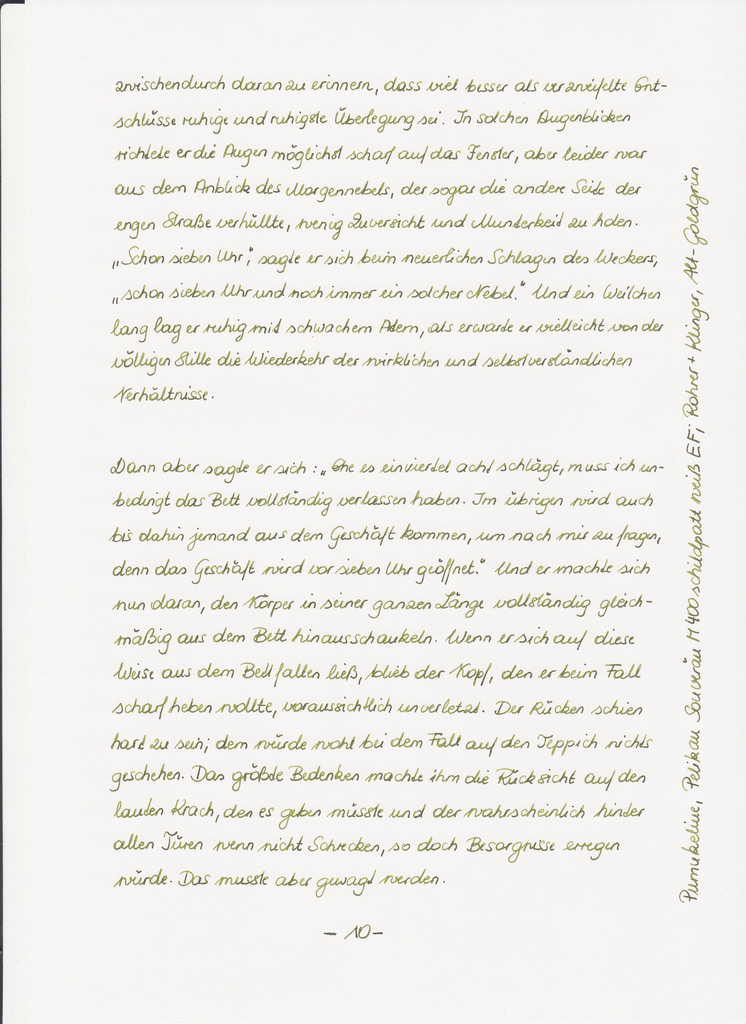 zwischendurch daran zu erinnern, dass viel besser als verzweifelte Ent-
schlüsse ruhige und ruhigste Überlegung sei. In solchen Augenblicken
richtete er die Augen möglichst scharf auf das Fenster, aber leider war
aus dem Anblick des Morgennebels, der sogar die andere Seite der
engen Straße verhüllte, wenig Zuversicht und Munterkeit zu holen.
„Schon sieben Uhr“, sagte er sich beim neuerlichen Schlagen des Weckers,
„schon sieben Uhr und noch immer ein solcher Nebel.“ Und ein Weilchen
lang lag er ruhig mit schwachem Atem, als erwarte er vielleicht von der
völligen Stille die Wiederkehr der wirklichen und selbstverständlichen
Verhältnisse.
Dann aber sagte er sich: „Ehe es einviertel acht schlägt, muss ich un-
bedingt das Bett vollständig verlassen haben. Im übrigen wird auch
bis dahin jemand aus dem Geschäft kommen, um nach mir zu fragen,
denn das Geschäft wird vor sieben Uhr geöffnet.“ Und er machte sich
nun daran, den Körper in seiner ganzen Länge vollständig gleich-
mäßig aus dem Bett hinauszuschaukeln. Wenn er sich auf diese
Weise aus dem Bett fallen ließ, blieb der Kopf, den er beim Fall
scharf heben wollte, voraussichtlich unverletzt. Der Rücken schien
hart zu sein; dem würde wohl bei dem Fall auf den Teppich nichts
geschehen. Das größte Bedenken machte ihm die Rücksicht auf den
lauten Krach, den es geben müsste und der wahrscheinlich hinter
allen Türen wenn nicht Schrecken, so doch Besorgnisse erregen
würde. Das musste aber gewagt werden.
- 10 -
Pumukeline, Pelikan Souverän M400 schildpatt weiß EF; Rohrer + Klinger, Alt-Goldgrün